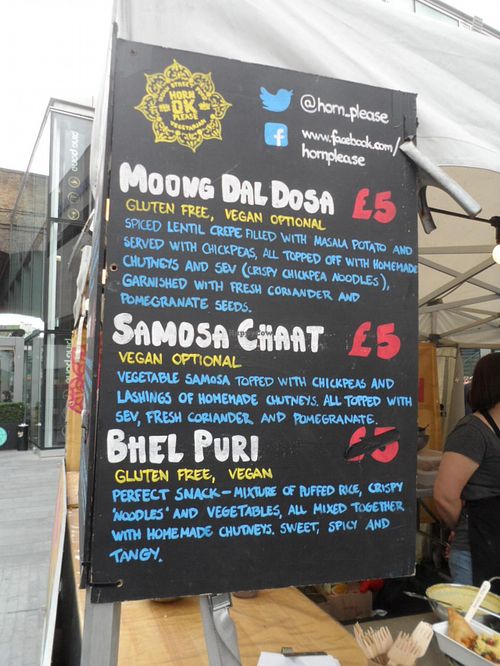 HORN
OK
PLEASE
VEGETARIAN
@horn_please
www.facebook.com/
hornplease
MOONG DAL DOSA £5
GLUTEN FREE, VEGAN OPTIONAL
SPICED LENTIL CREPE FILLED WITH MASALA POTATO AND
SERVED WITH CHICKPEAS, ALL TOPPED OFF WITH HOMEMADE
CHUTNEYS AND SEV (CRISPY CHICKPEA NOODLES),
GARNISHED WITH FRESH CORIANDER AND
POMEGRANATE SEEDS.
SAMOSA CHAAT £5
VEGAN OPTIONAL
VEGETABLE SAMOSA TOPPED WITH CHICKPEAS AND
LASHINGS OF HOMEMADE CHUTNEYS. ALL TOPPED WITH
SEV, FRESH CORIANDER AND POMEGRANATE.
BHEL PURI £5
GLUTEN FREE, VEGAN
PERFECT SNACK - MIXTURE OF PUFFED RICE, CRISPY
'NOODLES' AND VEGETABLES, ALL MIXED TOGETHER
WITH HOMEMADE CHUTNEYS. SWEET, SPICY AND
TANGY.